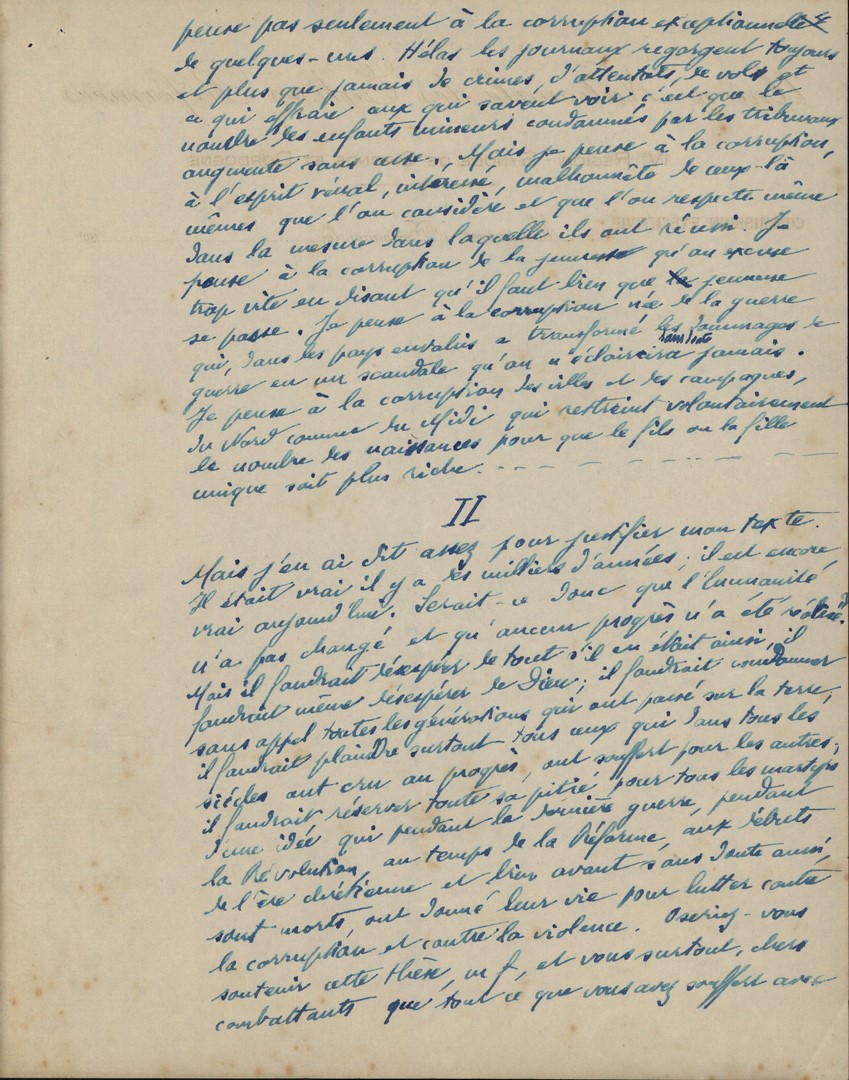 pense pas seulement à la corruption exceptionnelle
de quelques-uns. Hélas les journaux regorgent toujours
et plus que jamais de crimes, d'attentats, de vols et
ce qui effraie ceux qui savent voir c'est que le
nombre des enfants mineurs condamnés par les tribunaux
augmente sans cesse. Mais je pense à la corruption,
à l'esprit vénal, intéressé, malhonnête de ceux-là
mêmes que l'on considère et que l'on respecte même
dans la mesure dans laquelle ils ont réussi. Je
pense à la corruption de la jeunesse qu'on excuse
trop vite en disant qu'il faut bien que jeunesse
se passe. Je pense à la corruption née de la guerre
qui, dans les pays envahis a transformé les dommages de
guerre en un scandale qu'on n'éclaircira sans doute jamais.
Je pense à la corruption des villes et des campagnes,
du Nord comme du Midi qui restreint volontairement
le nombre des naissances pour que le fils ou la fille
unique soit plus riche.
II
Mais j'en ai dit assez pour justifier mon texte.
Il était vrai il y a des milliers d'années; il est encore
vrai aujourd'hui. Serait-ce donc que l'humanité
n'a pas changé et qu'aucun progrès n'a été réalisé?
Mais il faudrait désespérer de tout s'il en était ainsi, il
faudrait même désespérer de Dieu; il faudrait condamner
sans appel toutes les générations qui ont passé sur la terre;
il faudrait plaindre surtout tous ceux qui dans tous les
siècles ont cru au progrès, ont souffert pour les autres;
il faudrait réserver toute sa pitié pour tous les martyrs
d'une idée qui pendant la dernière guerre, pendant
la Révolution, au temps de la Réforme, aux débuts
de l'ère chrétienne et bien avant sans doute aussi,
sont morts, ont donné leur vie pour lutter contre
la corruption et contre la violence. Oseriez-vous
soutenir cette thèse, m f, et vous surtout, chers
combattants que tout ce que vous avez souffert avec